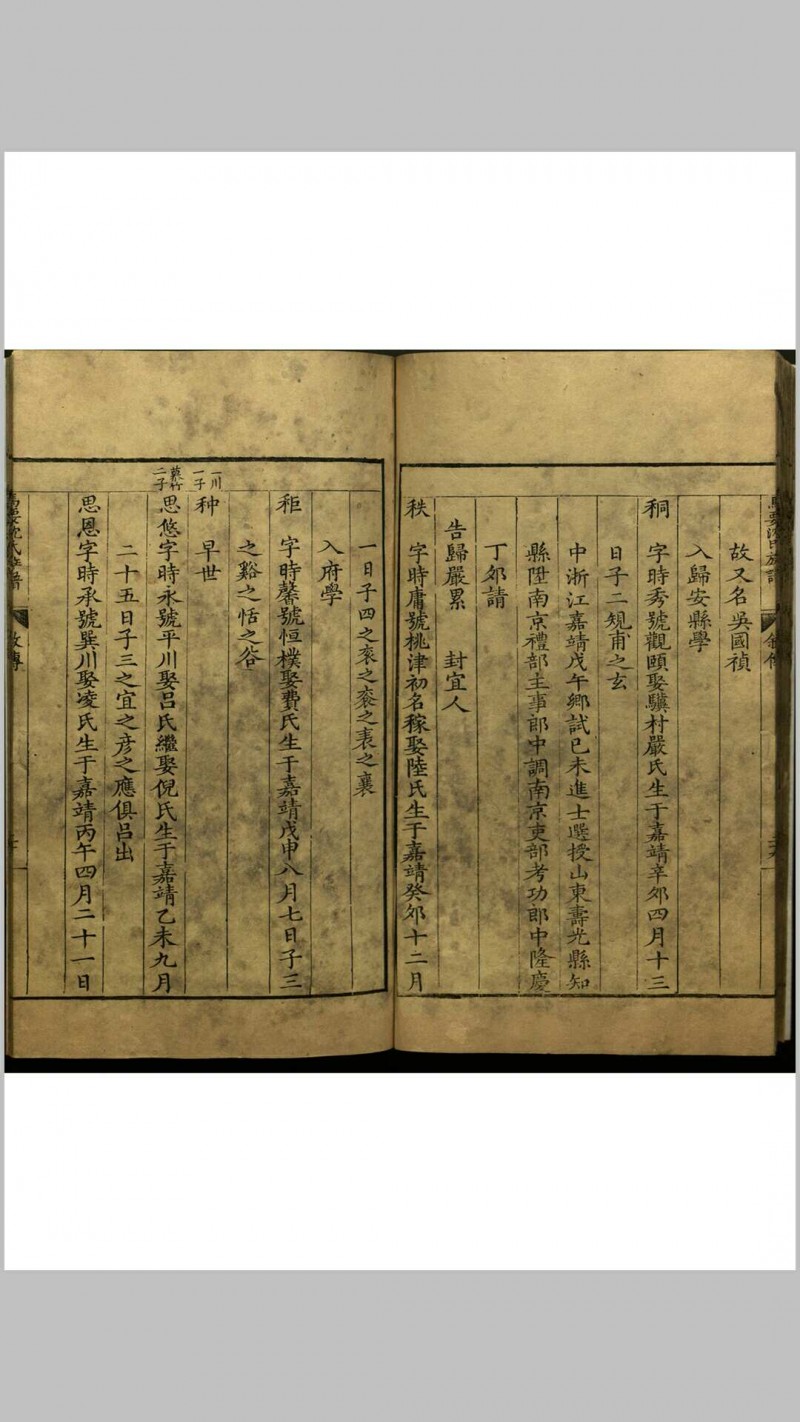 故又名吳國禎
入歸安縣學
秱 字時秀號觀頤娶驥村嚴氏生于嘉靖辛卯四月十三
日子二規甫之玄
中浙江嘉靖戊午鄉試已未進士選授山東壽光縣知
縣陞南京禮部主事郎中調南京吏部考功郎中隆慶
丁卯請
告歸嚴累 封宜人
秩 字時庸號桃津初名稼娶陸氏生于嘉靖癸卯十二月
一日子四之衮之褎之表之襄
入府學
秬 字時馨號恒樸娶費氏生于嘉靖戊申八月七日子三
之谿之恬之谷
一川
一子
种 早世
二子
思悠字時永號平川娶呂氏繼娶倪氏生于嘉靖乙未九月
二十五日子三之宜之彦之應俱呂出
思恩字時承號巽川娶凌氏生于嘉靖丙午四月二十一日